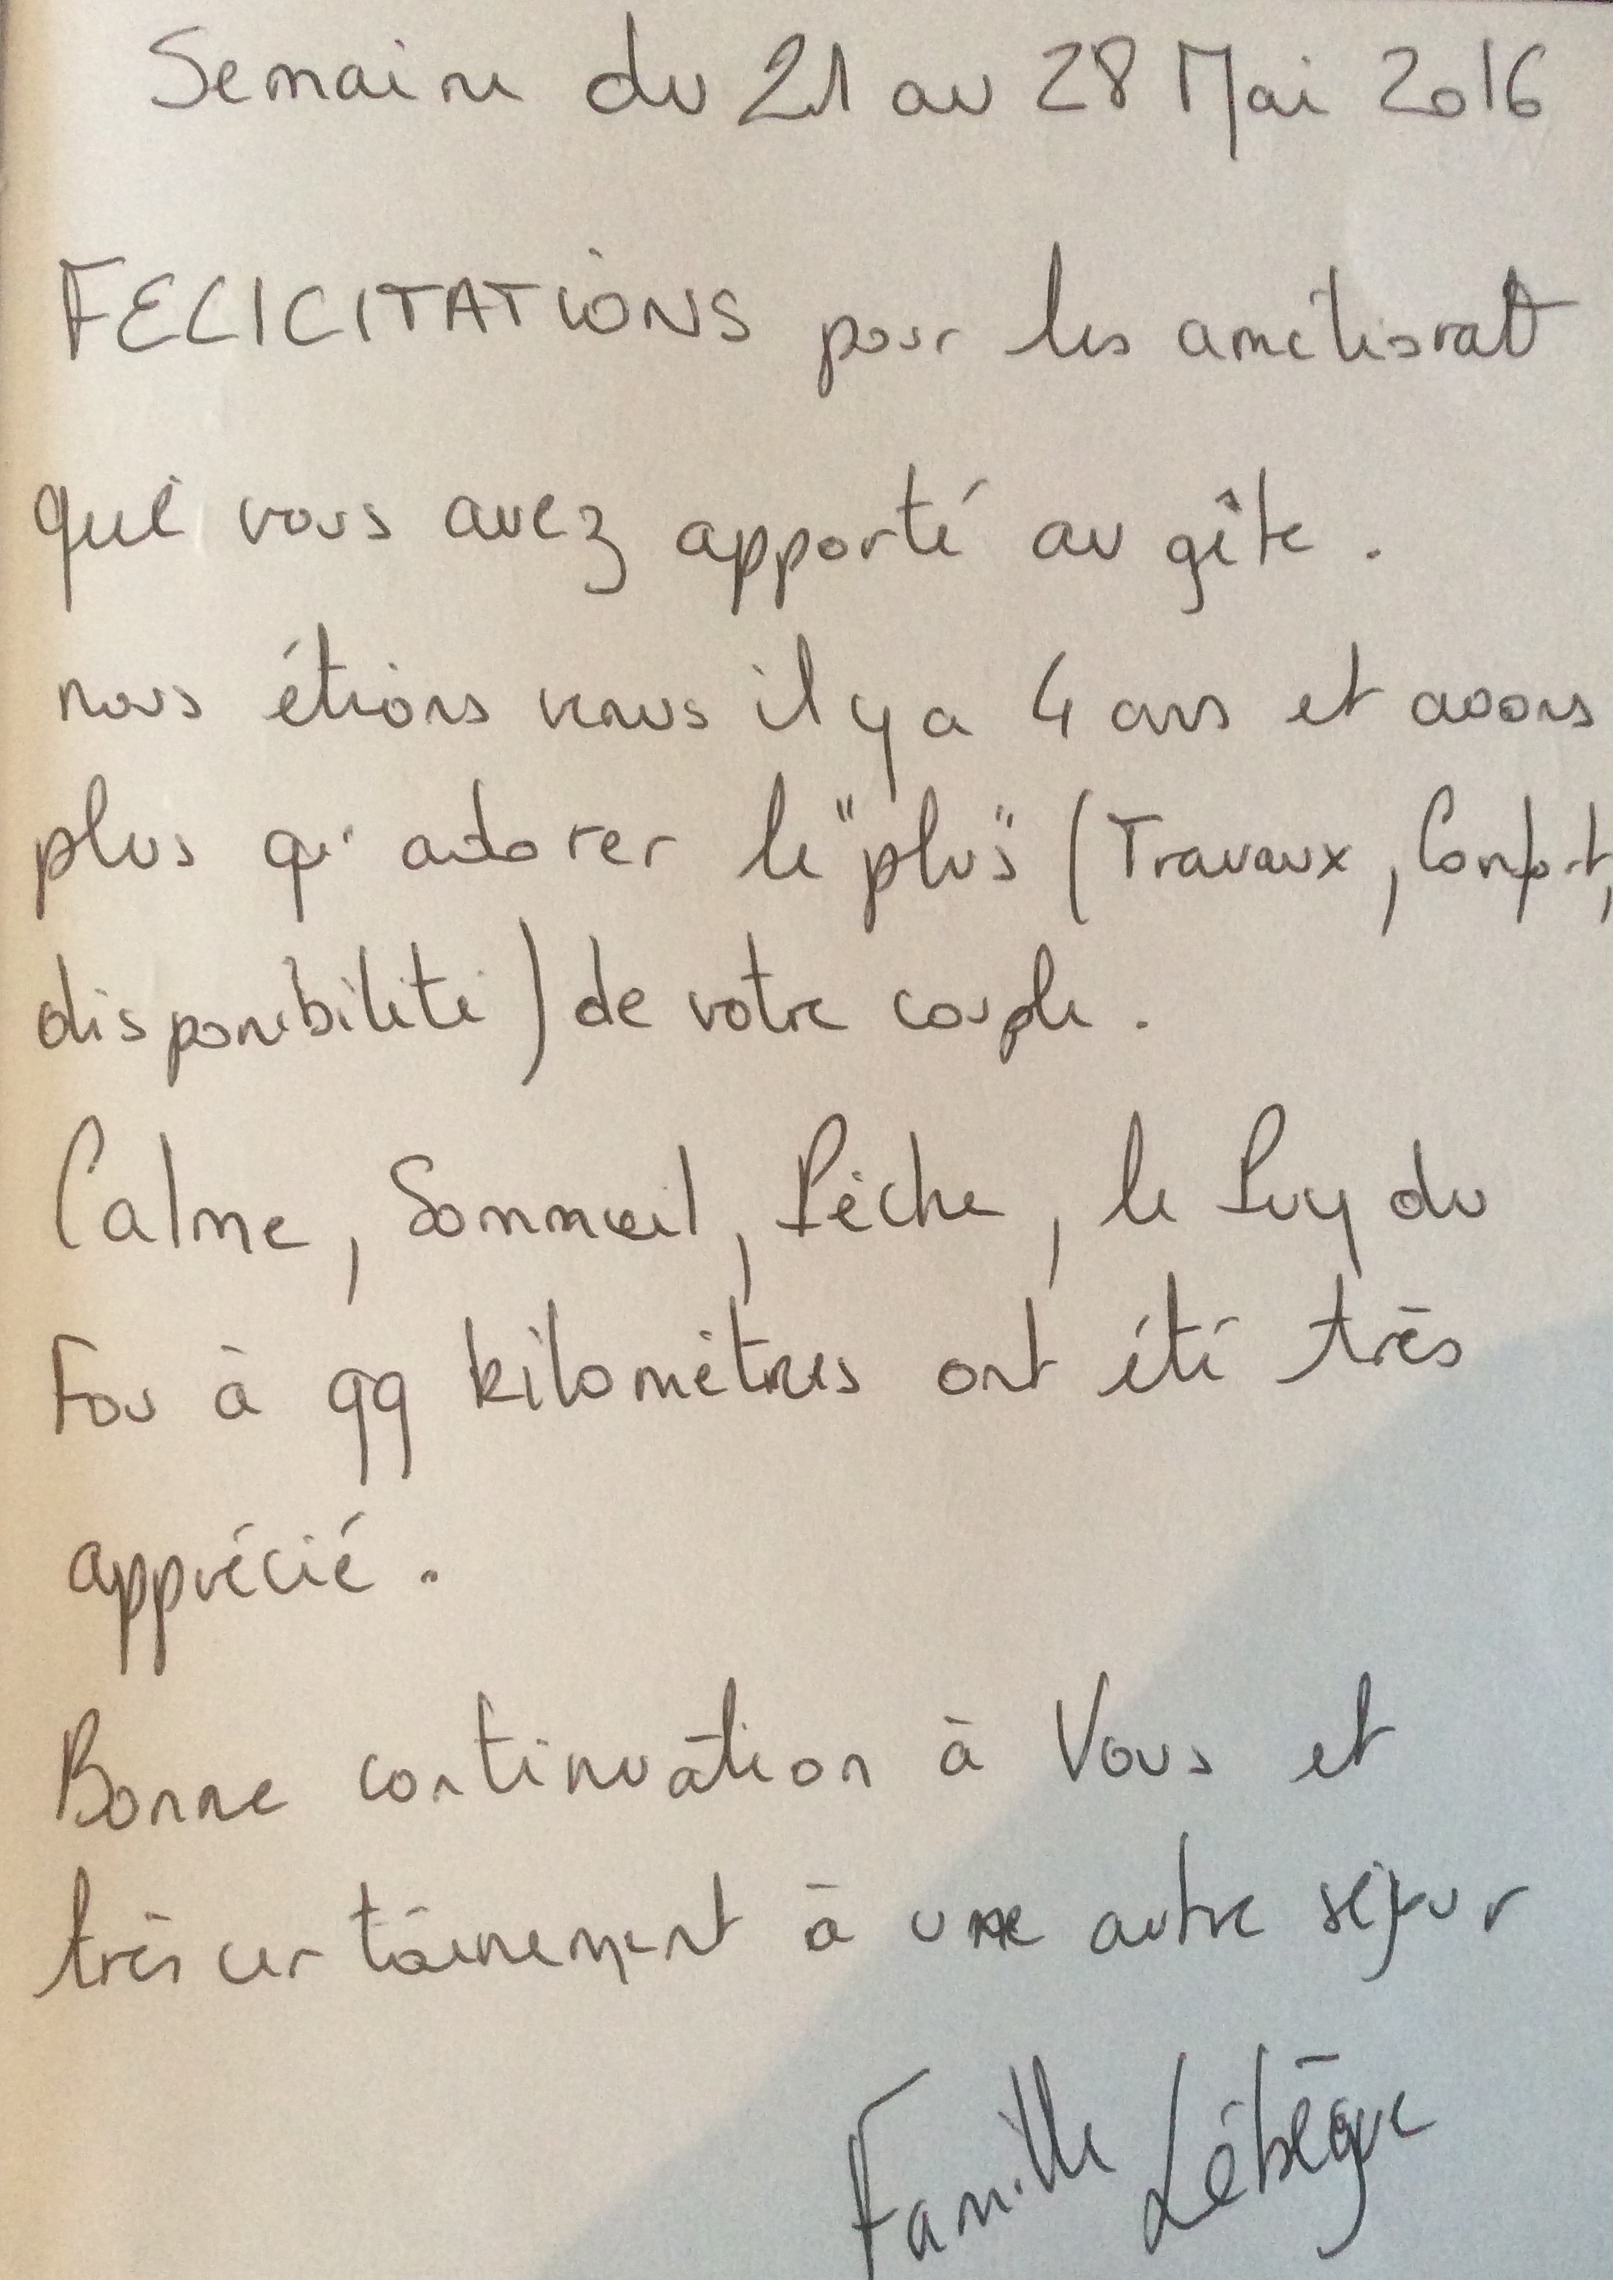 Semaine du 21 au 28 Mai 2016
FELICITATIONS pour les améliorat
que vous avez apporté au gîte.
nous étions venus il y a 4 ans et avons
plus qu'adorer le "plus" (Travaux, Confort,
disponibilité) de votre couple.
Calme, Sommeil, Pêche, le Puy du
Fou à 99 kilomètres ont été très
apprécié.
Bonne continuation à Vous et
très certainement à une autre séjour
Famille Lébègue